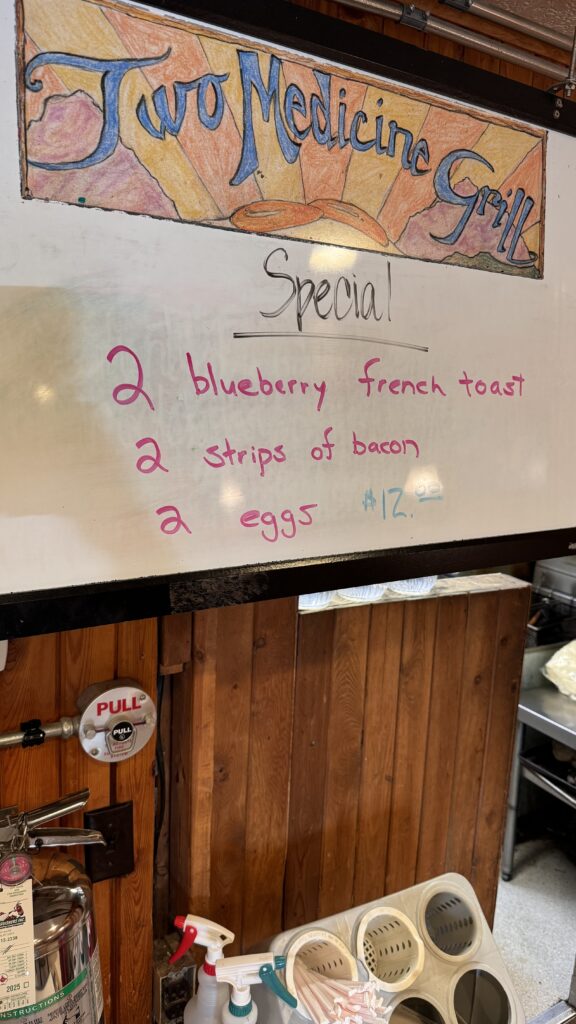 Two Medicine Grill
Special
2 blueberry french toast
2 strips of bacon
2 eggs $12.00
PULL
PULL
INSTRUCTIONS
2025